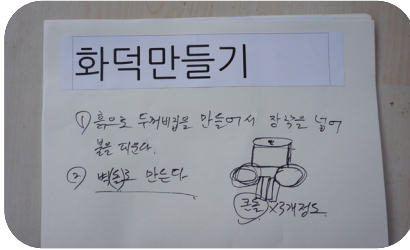 화덕만들기
① 흙으로 두꺼비집을 만들어서 장작을 넣어
불을 피운다.
② 벽돌로 만든다
큰돌 x3개정도